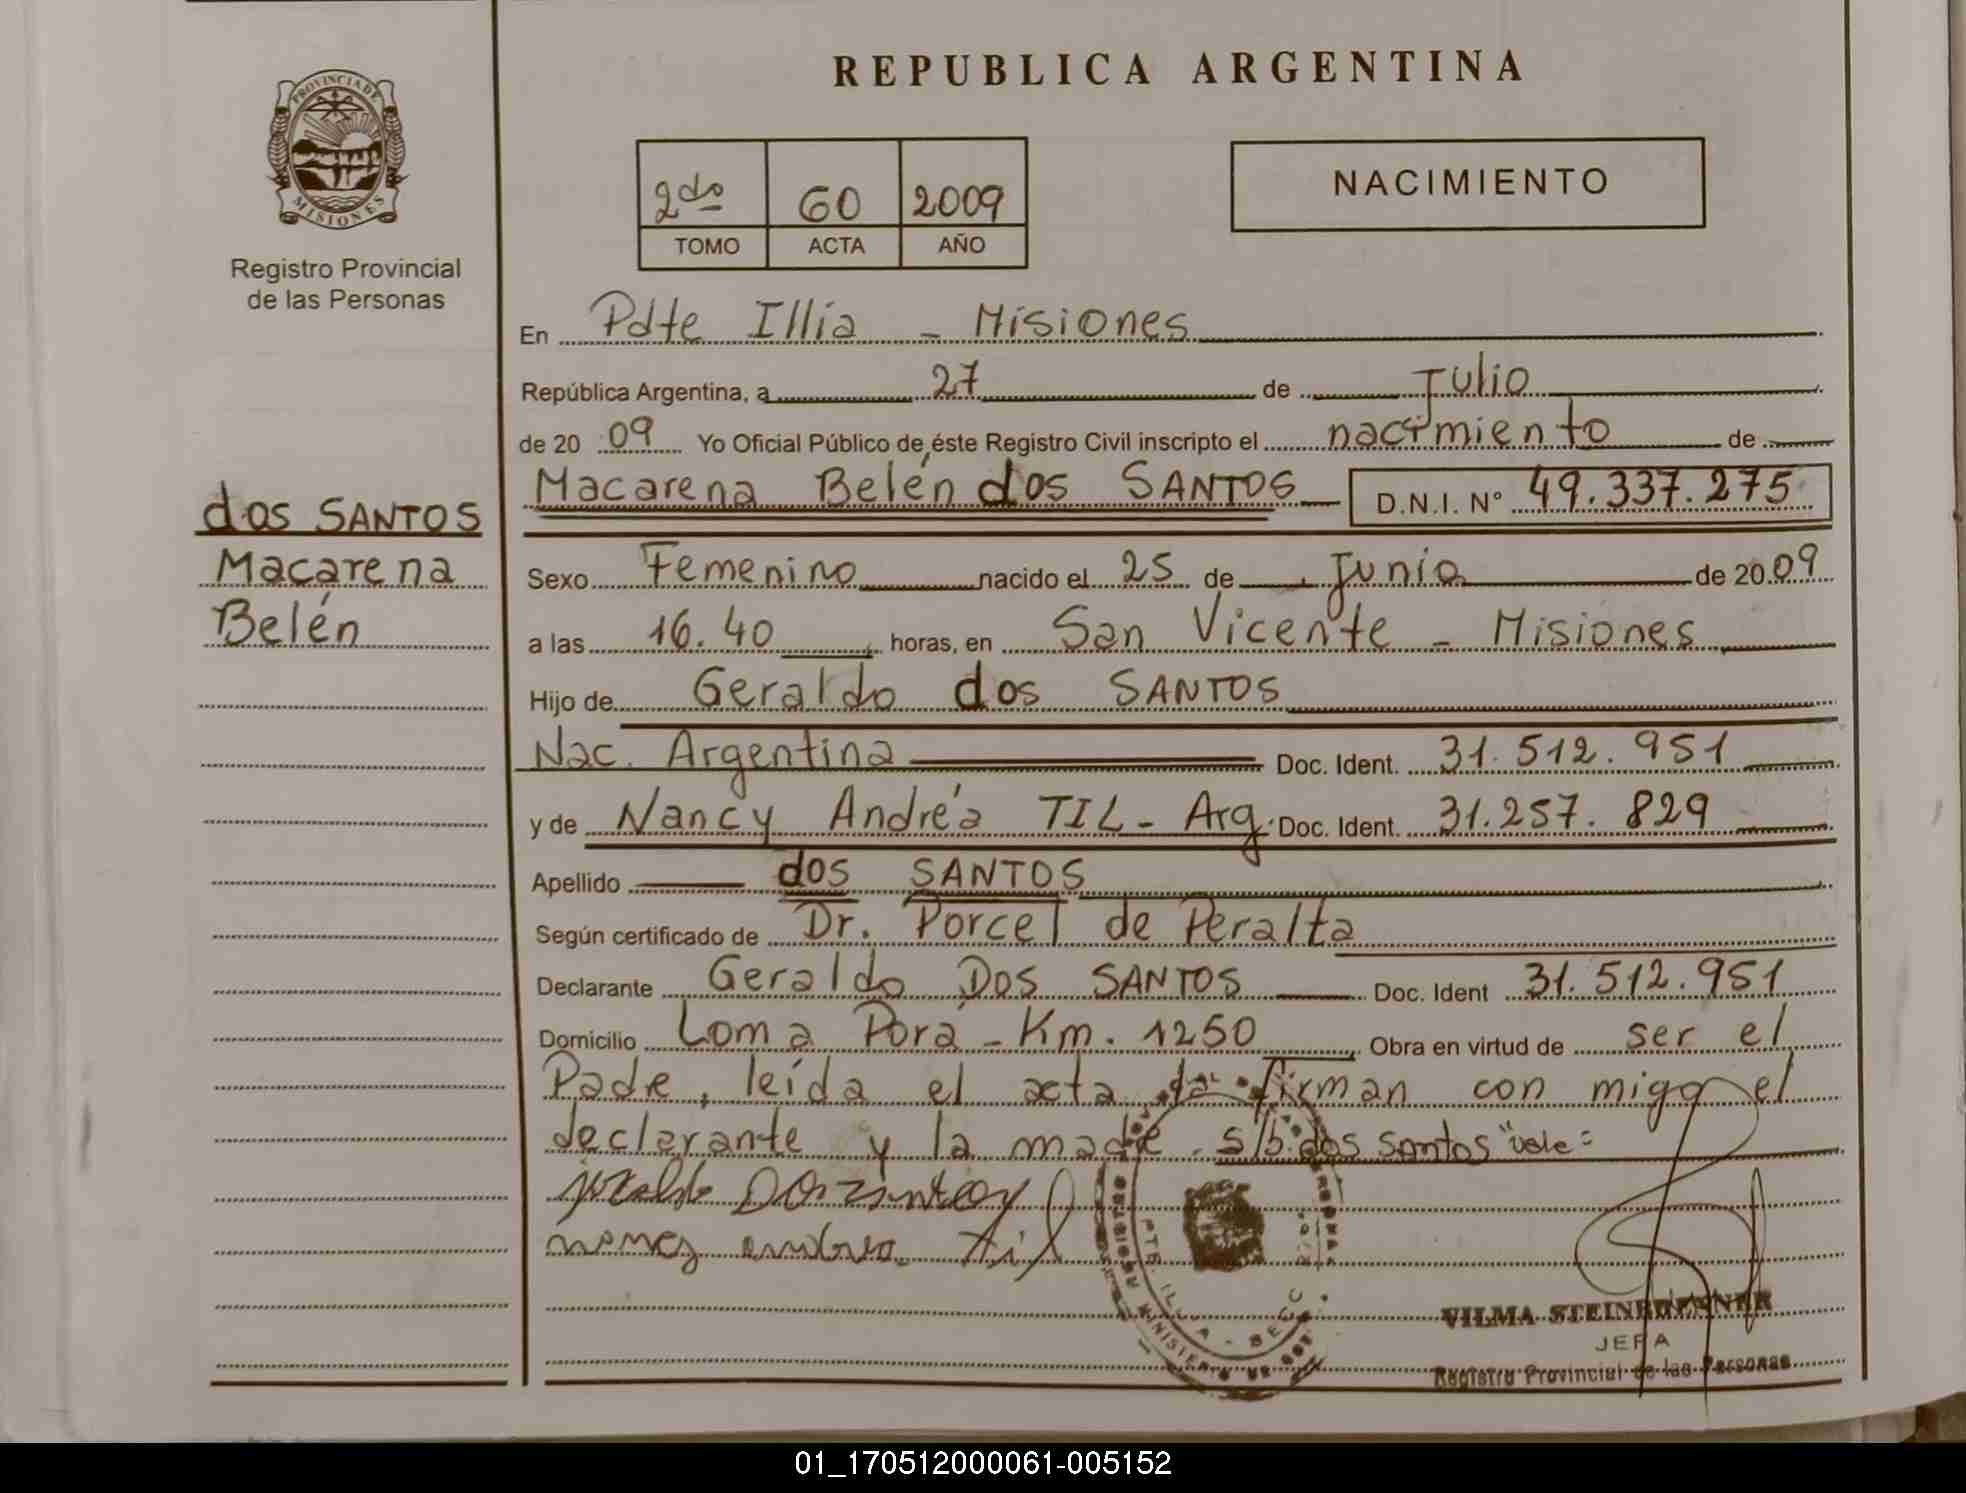 REPUBLICA ARGENTINA
PROVINCIA DE
MISIONES
Registro Provincial
de las Personas
2do 60 2009
TOMO ACTA AÑO
NACIMIENTO
En Pdte Illia - Misiones
República Argentina, a 27 de Julio
de 20 09 Yo Oficial Público de éste Registro Civil inscripto el nacimiento de
Macarena Belén dos SANTOS D.N.I. N° 49.337.275
dos SANTOS
Macarena
Belén
Sexo Femenino nacido el 25 de Junio de 20 09
a las 16.40 horas, en San Vicente - Misiones
Hijo de Geraldo dos SANTOS
Nac. Argentina Doc. Ident. 31.512.951
y de Nancy Andréa TIL - Arg. Doc. Ident. 31.257.829
Apellido dos SANTOS
Según certificado de Dr. Porcel de Peralta
Declarante Geraldo DOS SANTOS Doc. Ident 31.512.951
Domicilio Loma Porá - Km. 1250 Obra en virtud de ser el
Padre, leída el acta la firman con migo el
declarante y la madre. s/b. dos Santos "vale=
Dos santos
til
VILMA
JEFA
Registro Provincial de las Personas
01_170512000061-005152